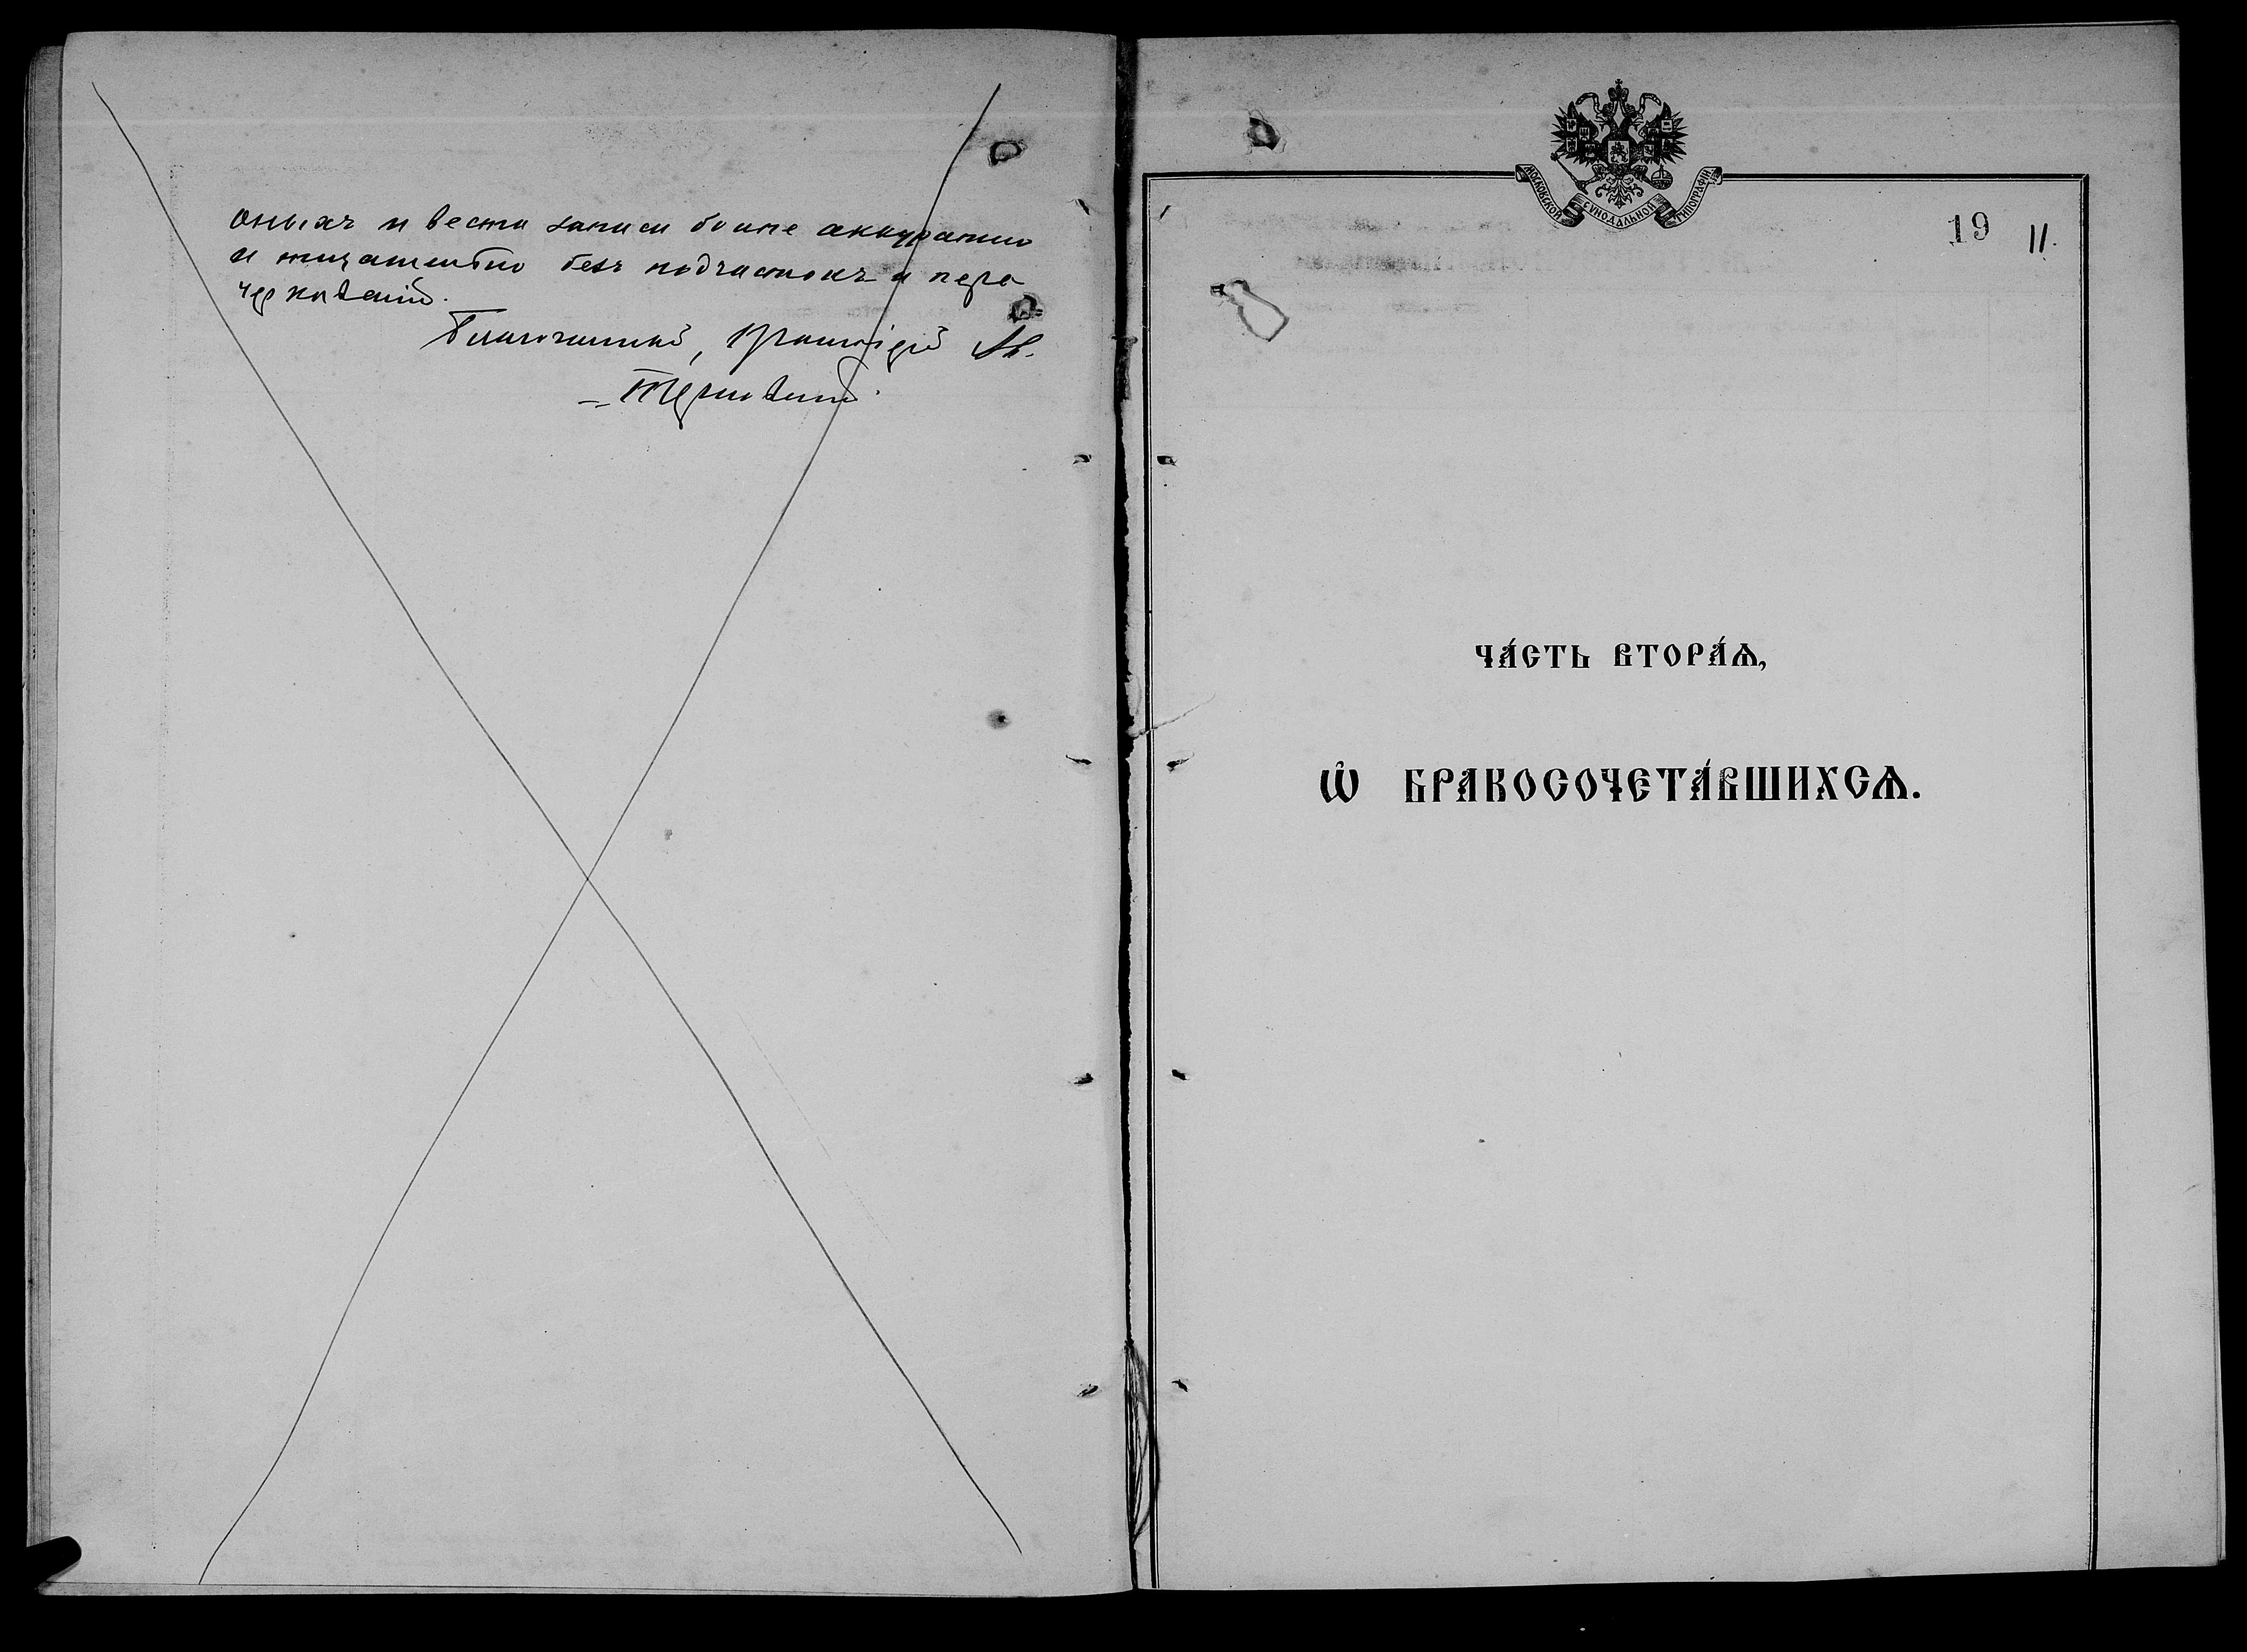 оныхъ и вести записи болѣе аккуратно
и тщательно безъ подчистокъ и пере
черкиваній.
Благочинный, Протоіерей
Терновскій.
МОСКОВСКОЙ СѴНОДАЛЬНОЙ ТИПОГРАФІИ
19 11.
ЧА́СТЬ ВТОРА́Ѧ,
Ѽ БРАКОСОЧЕТА́ВШИХСѦ.